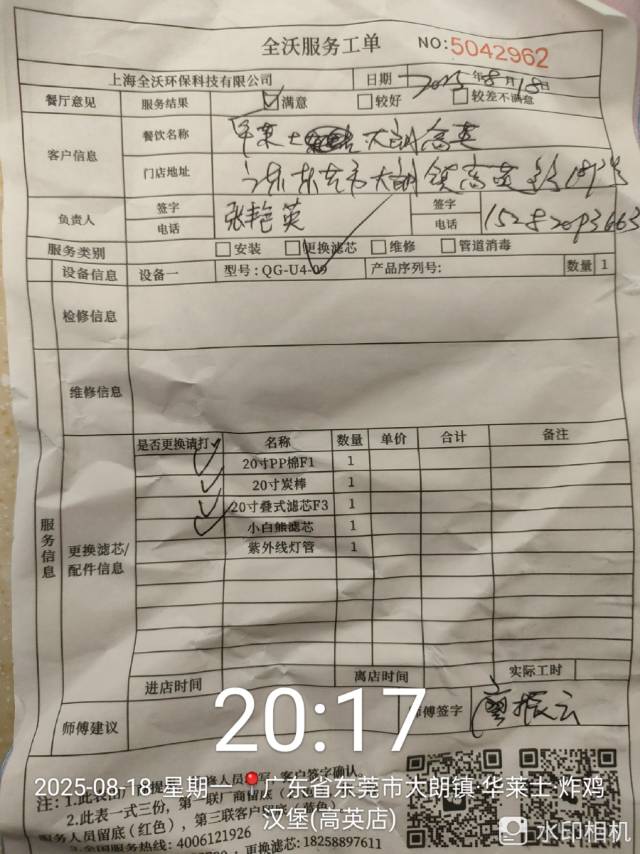 全沃服务工单 NO:5042962
上海全沃环保科技有限公司 日期 2025年8月18日
餐厅意见 服务结果 满意 较好 较差不满意
客户信息 餐饮名称 华莱士 大朗高英
门店地址 广东东莞市大朗镇高英路189号
负责人 签字 张艳英 签字
电话 电话 15282093663
服务类别 安装 更换滤芯 维修 管道消毒
设备信息 设备一 型号:QG-U4-09 产品序列号: 数量 1
检修信息
维修信息
服务信息
更换滤芯/
配件信息
是否更换请打✓ 名称 数量 单价 合计 备注
20寸PP棉F1 1
20寸炭棒 1
20寸叠式滤芯F3 1
小白熊滤芯 1
紫外线灯管 1
进店时间 离店时间 实际工时
师傅建议 师傅签字 廖振云
20:17
2025-08-18 星期一 广东省东莞市大朗镇·华莱士·炸鸡
汉堡(高英店)
注:
2.此表一式三份,第一联厂商留底
服务人员留底(红色),第三联客户留底
3.全国服务热线:4006121926
更换滤芯:18258897611
水印相机